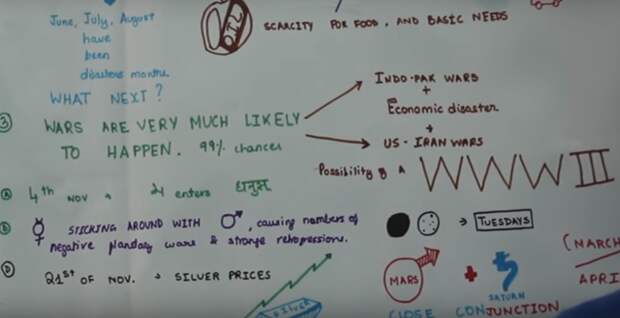 June, July, August
have
been
disastrous months.
WHAT NEXT?
OIL
SCARCITY FOR FOOD, AND BASIC NEEDS
③ WARS ARE VERY MUCH LIKELY
TO HAPPEN. 99% chances
INDO-PAK WARS
+
Economic disaster
+
US - IRAN WARS
Possibility of A WWW III
4th NOV → ♃ enters धनुष
☿ STICKING AROUND WITH ♂, causing numbers of
negative planetary wars & strange
→ TUESDAYS
21st OF NOV. → SILVER PRICES
Silver
MARS + SATURN
CLOSE CONJUNCTION
(MARCH
APRI